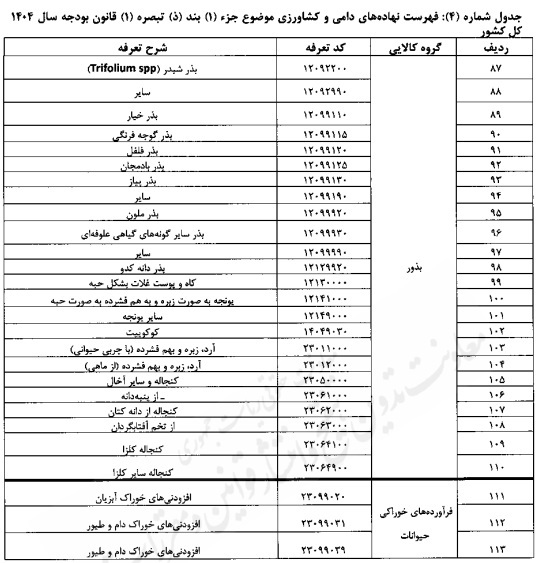 جدول شماره (۴): فهرست نهاده‌های دامی و کشاورزی موضوع جزء (۱) بند (ذ) تبصره (۱) قانون بودجه سال ۱۴۰۴
کل کشور
ردیف گروه کالایی کد تعرفه شرح تعرفه
۸۷ ۱۲۰۹۲۲۰۰ بذر شیدر (Trifolium spp)
۸۸ ۱۲۰۹۲۹۹۰ سایر
۸۹ ۱۲۰۹۹۱۱۰ بذر خیار
۹۰ ۱۲۰۹۹۱۱۵ بذر گوجه فرنگی
۹۱ ۱۲۰۹۹۱۲۰ بذر فلفل
۹۲ ۱۲۰۹۹۱۲۵ بذر بادمجان
۹۳ ۱۲۰۹۹۱۳۰ بذر پیاز
۹۴ ۱۲۰۹۹۱۹۰ سایر
۹۵ ۱۲۰۹۹۹۲۰ بذر ملون
۹۶ ۱۲۰۹۹۹۳۰ بذر سایر گونه‌های گیاهی علوفه‌ای
۹۷ ۱۲۰۹۹۹۹۰ سایر
۹۸ بذور ۱۲۱۲۹۹۲۰ بذر دانه کدو
۹۹ ۱۲۱۳۰۰۰۰ کاه و پوست غلات بشکل حبه
۱۰۰ ۱۲۱۴۱۰۰۰ یونجه به صورت زبره و به هم فشرده به صورت حبه
۱۰۱ ۱۲۱۴۹۰۰۰ سایر یونجه
۱۰۲ ۱۴۰۴۹۰۳۰ کوکوپیت
۱۰۳ ۲۳۰۱۱۰۰۰ آرد، زبره و بهم فشرده (با چربی حیوانی)
۱۰۴ ۲۳۰۱۲۰۰۰ آرد، زبره و بهم فشرده (از ماهی)
۱۰۵ ۲۳۰۵۰۰۰۰ کنجاله و سایر آخال
۱۰۶ ۲۳۰۶۱۰۰۰ ـ از پنبه‌دانه
۱۰۷ ۲۳۰۶۲۰۰۰ کنجاله از دانه کتان
۱۰۸ ۲۳۰۶۳۰۰۰ از تخم آفتابگردان
۱۰۹ ۲۳۰۶۴۱۰۰ کنجاله کلزا
۱۱۰ ۲۳۰۶۴۹۰۰ کنجاله سایر کلزا
۱۱۱ ۲۳۰۹۹۰۲۰ افزودنی‌های خوراک آبزیان
فرآورده‌های خوراکی
۱۱۲ ۲۳۰۹۹۰۳۱ افزودنی‌های خوراک دام و طیور
حیوانات
۱۱۳ ۲۳۰۹۹۰۳۹ افزودنی‌های خوراک دام و طیور